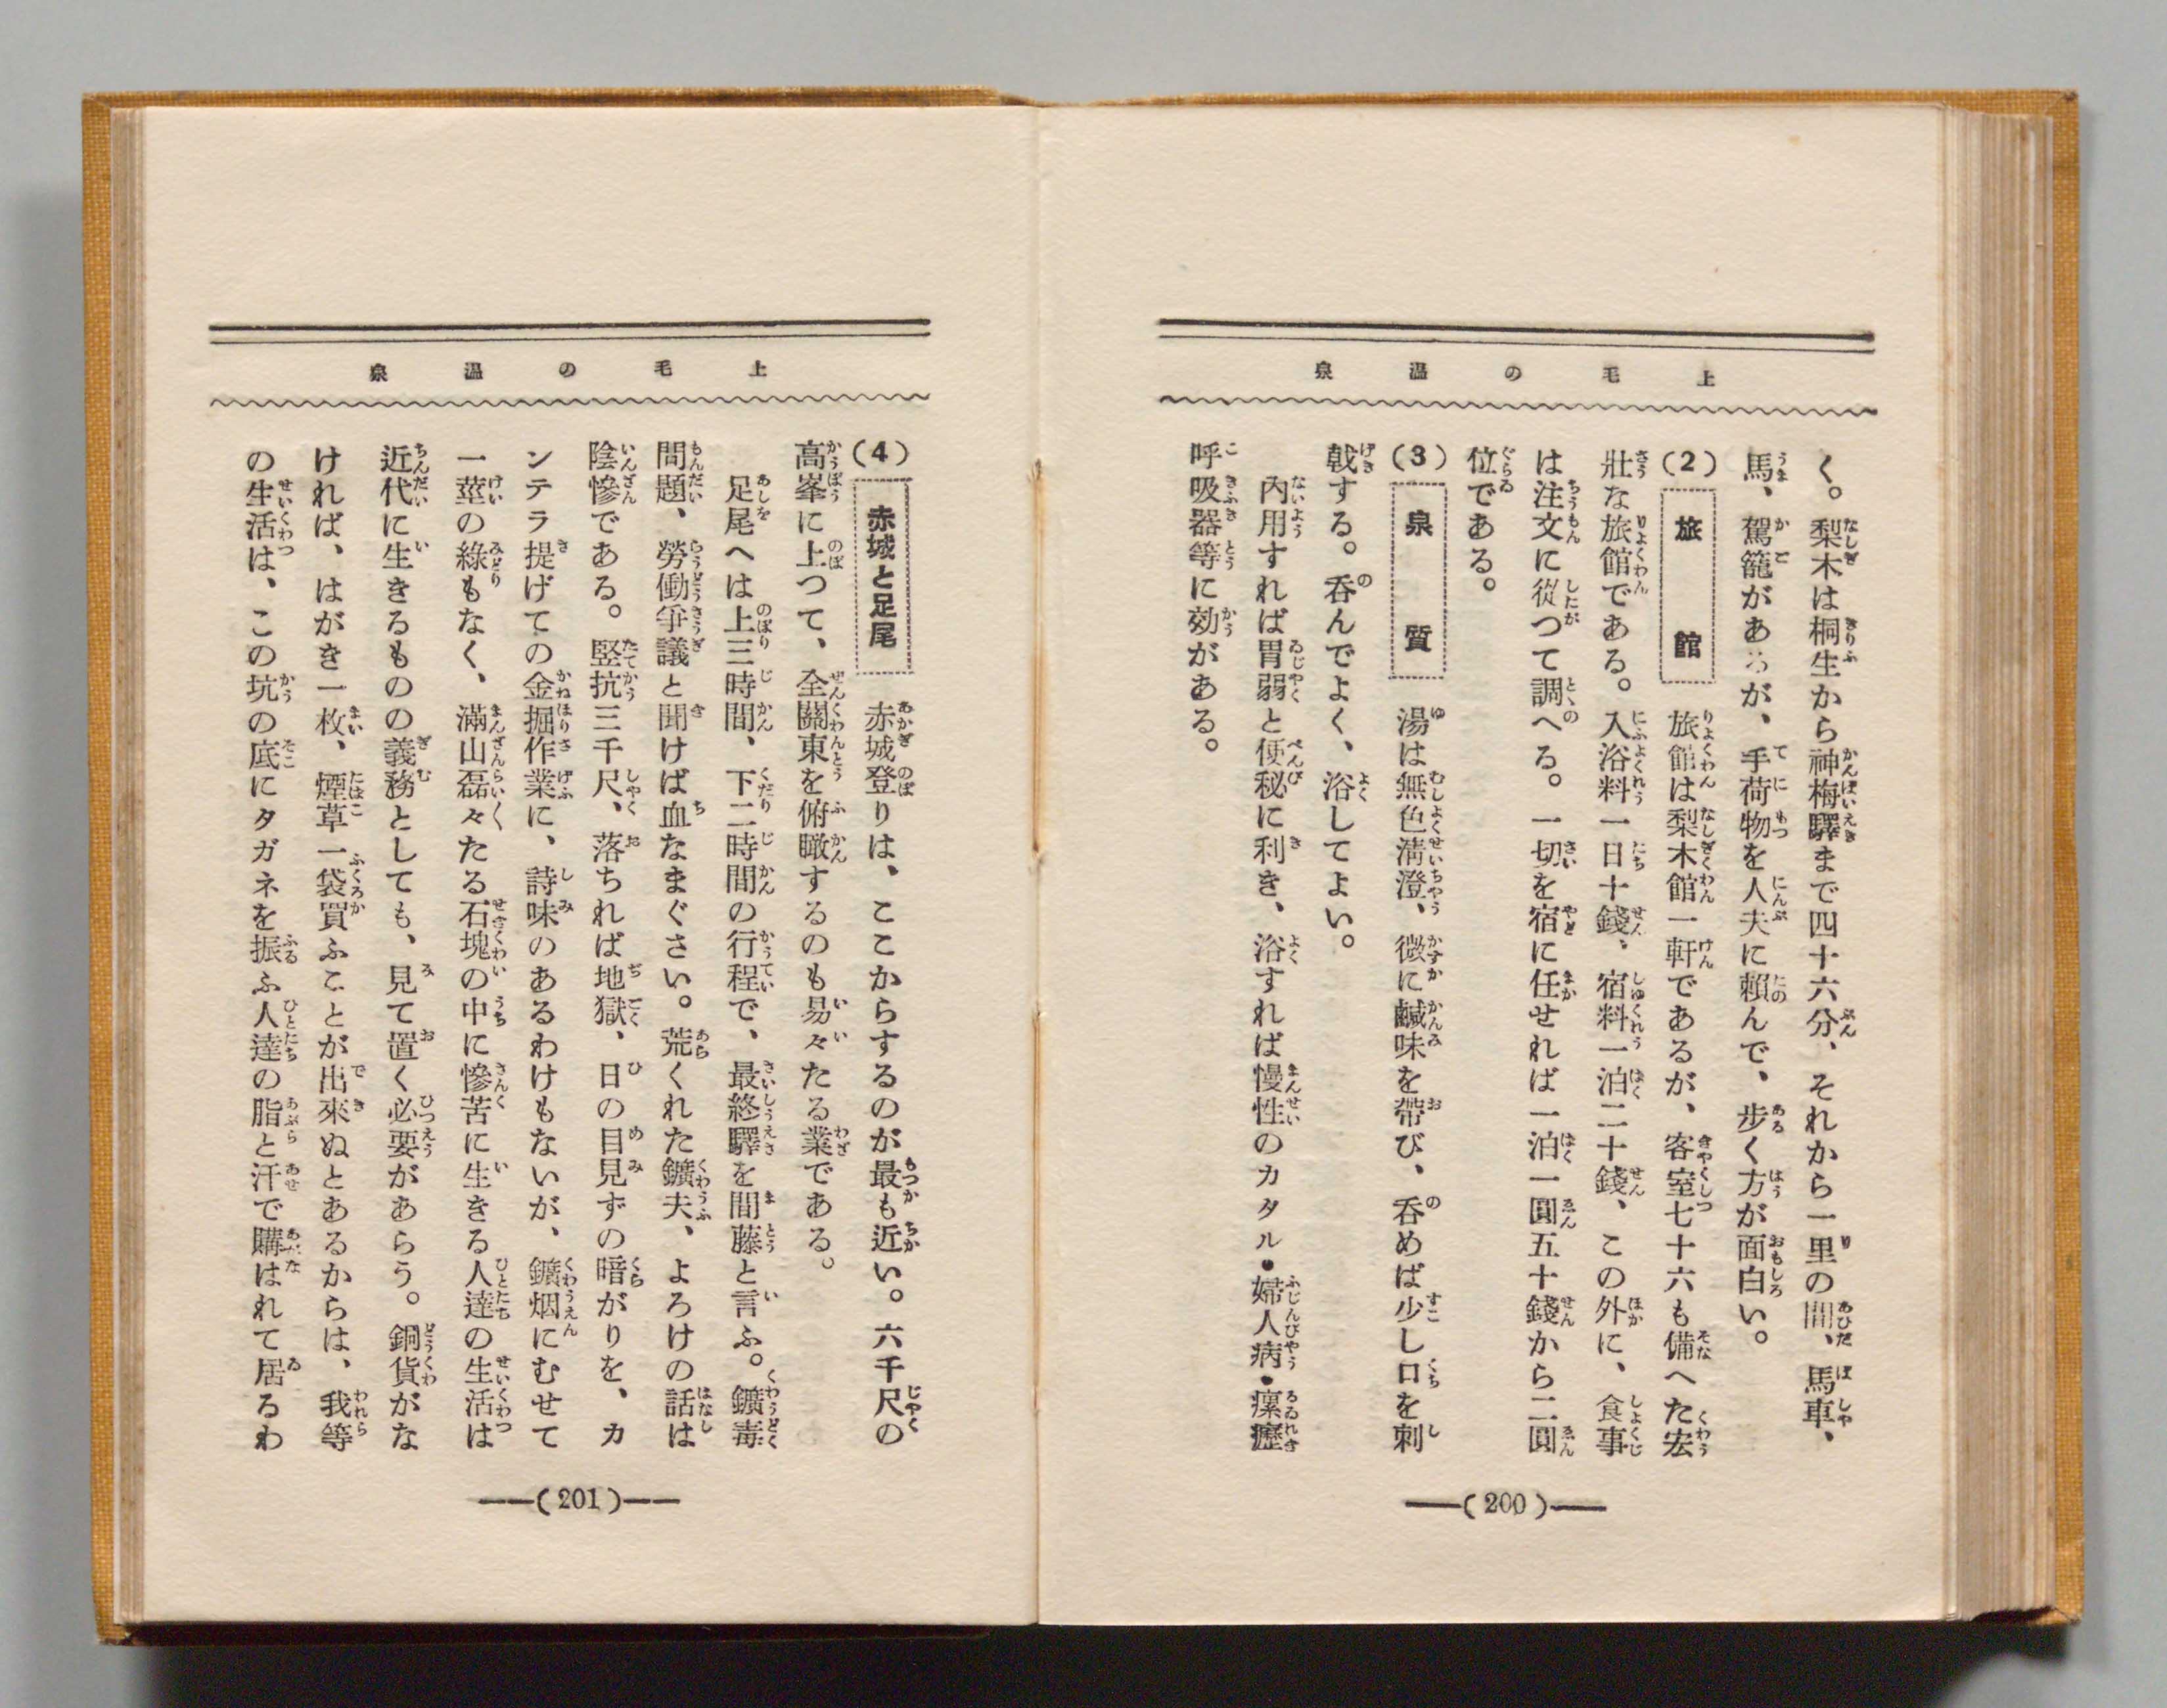 上毛の温泉
く。梨木は桐生から神梅驛まで四十六分、それから一里の間、馬車、
馬、駕籠があるが、手荷物を人夫に賴んで、歩く方が面白い。
(2) 旅館 旅館は梨木館一軒であるが、客室七十六も備へた宏
壯な旅館である。入浴料一日十錢、宿料一泊二十錢、この外に、食事
は注文に從つて調へる。一切を宿に任せれば一泊一圓五十錢から二圓
位である。
(3) 泉質 湯は無色淸澄、微に鹹味を帶び、呑めば少し口を刺
戟する。呑んでよく、浴してよい。
內用すれば胃弱と便秘に利き、浴すれば慢性のカタル・婦人病・瘰癧
呼吸器等に効がある。
(200)
上毛の温泉
(4) 赤城と足尾 赤城登りは、ここからするのが最も近い。六千尺の
高峯に上つて、全關東を俯瞰するのも易々たる業である。
足尾へは上三時間、下二時間の行程で、最終驛を間藤と言ふ。鑛毒
問題、勞働爭議と聞けば血なまぐさい。荒くれた鑛夫、よろけの話は
陰慘である。竪抗三千尺、落ちれば地獄、日の目見ずの暗がりを、カ
ンテラ提げての金掘作業に、詩味のあるわけもないが、鑛烟にむせて
一莖の綠もなく、滿山磊々たる石塊の中に慘苦に生きる人達の生活は
近代に生きるものの義務としても、見て置く必要があらう。銅貨がな
ければ、はがき一枚、煙草一袋買ふことが出來ぬとあるからは、我等
の生活は、この坑の底にタガネを振ふ人達の脂と汗で購はれて居るわ
(201)